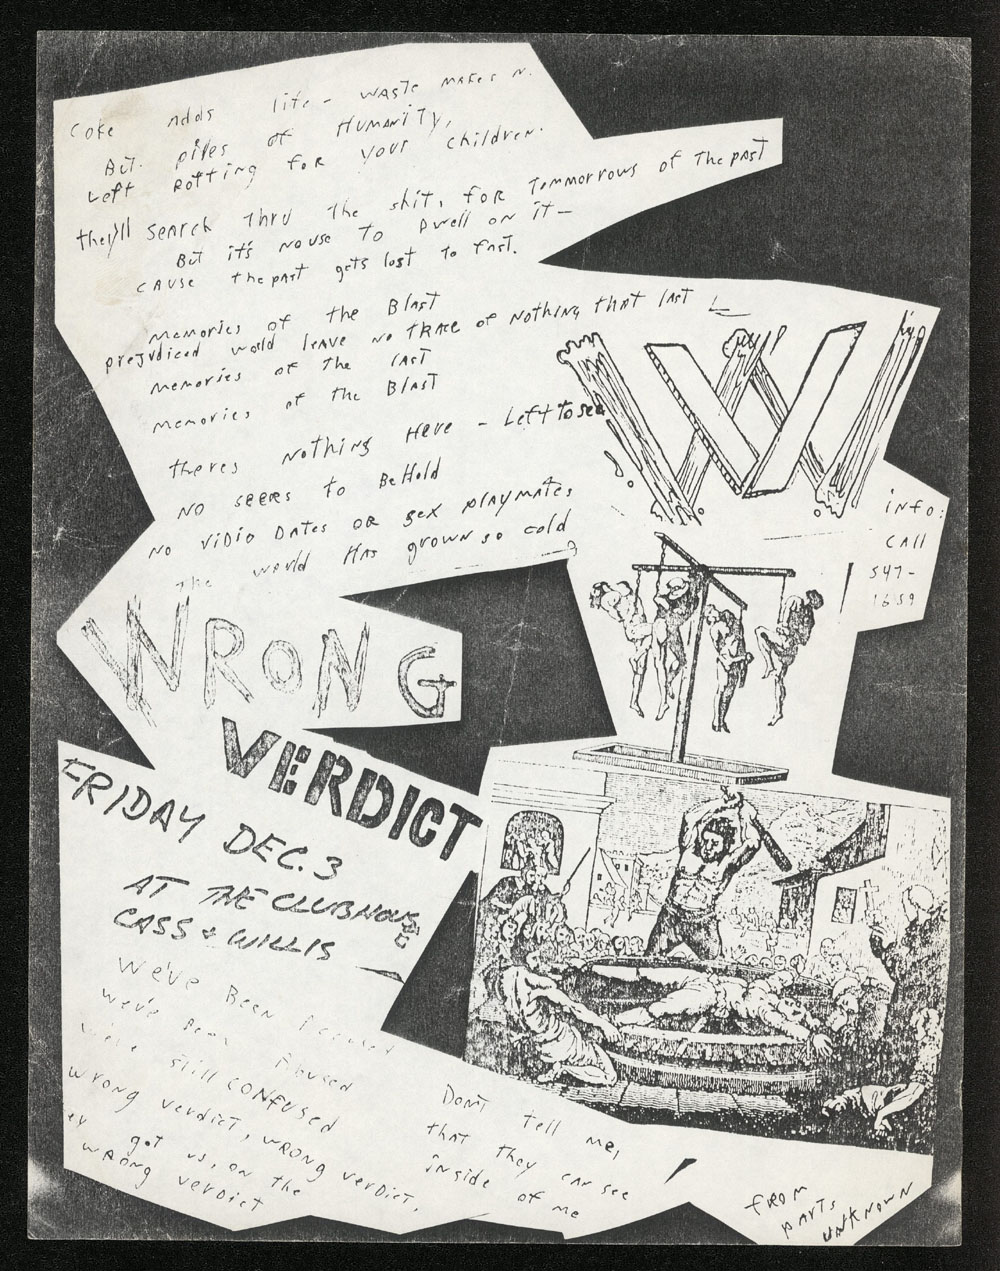 Coke adds life - waste makes
But piles of Humanity,
Left Rotting for your children.
they'll search thru the shit, for Tommorrows of The past
But it's no use To Dwell on it-
cause the past gets lost to fast.
memories of the Blast
prejudiced world leave no trace of Nothing that last
memories of the last
memories of the Blast
theres nothing Here - Left to see
NO SEERS to Behold
NO ViDiO DATES OR sex playmates
The world Has grown so cold
W
info:
CAll
547-
1659
WRONG
VERDICT
FRIDAY DEC. 3
AT THE CLUBHOUSE
CASS & WILLIS
We've Been Accused
we've Been
still CONFUSED
wrong verdict, wRONG verdict,
got us, on the
wRong verdict
Don't tell me,
that they can see
inside of me
from
parts
unknown